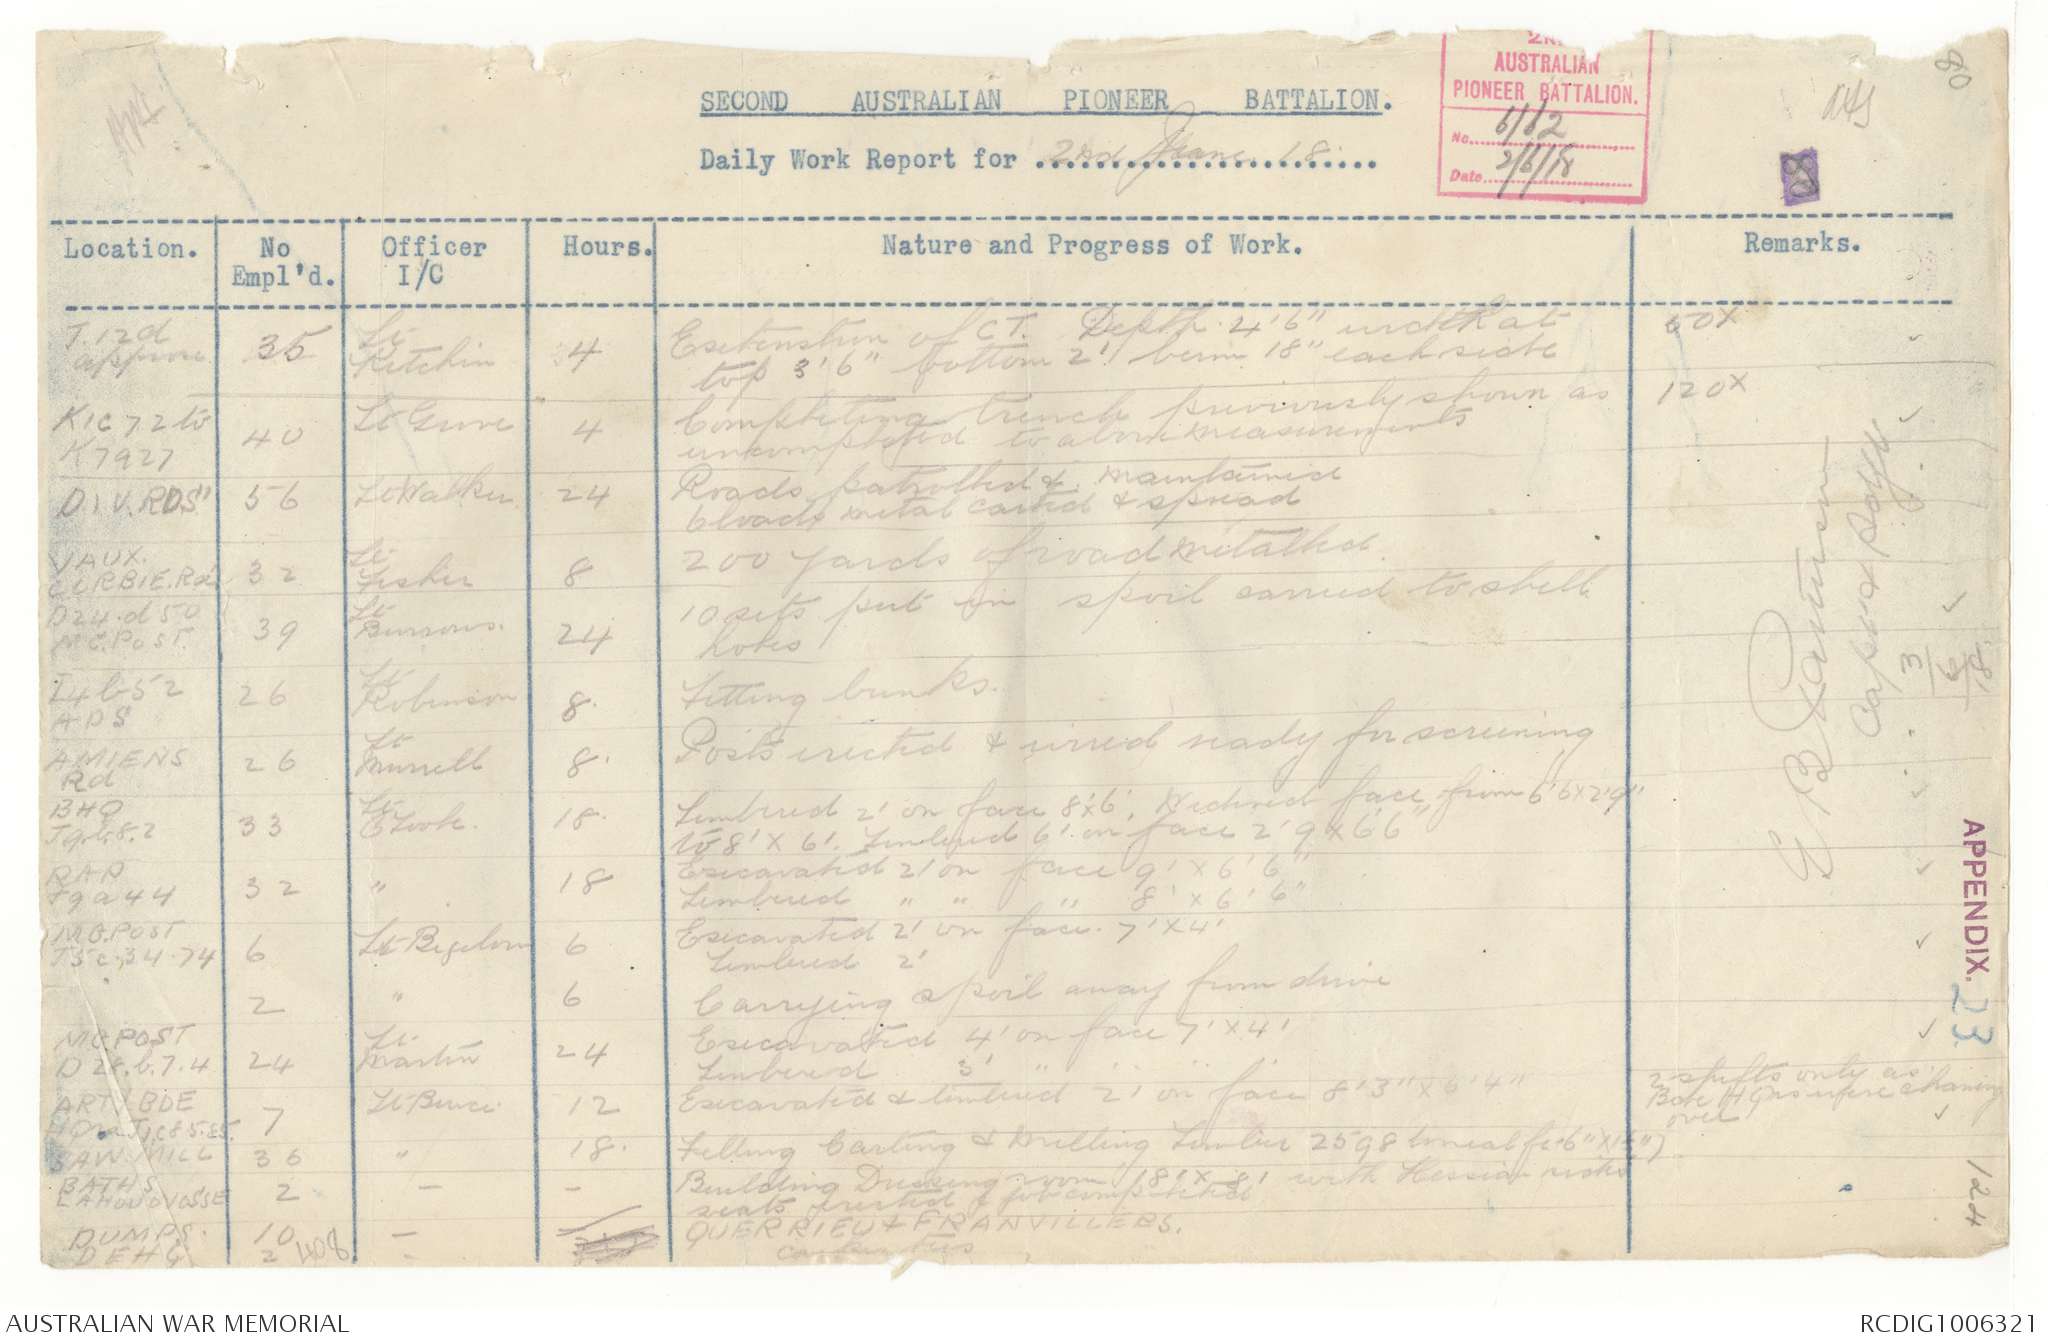 80
2ND
AUSTRALIAN
PIONEER BATTALION.
No. 6/62
Date 2/6/18
SECOND AUSTRALIAN PIONEER BATTALION.
Daily Work Report for 2nd June 18.
Location. No Empl'd. Officer I/C Hours. Nature and Progress of Work. Remarks.
J.12d 35 Lt Kitchin 4 Extenstion of C T. Depth 4'6" width at 50x
approx top 3'6" bottom 2' berm 18" each side
K1c72 to 40 Lt Grove 4 Completing trench previously shown as 120x
K7927 uncompleted to above measurements
DIV. RDS" 56 Lt Walker 24 Roads patrolled & maintained
loads metal carted & spread
VAUX. 32 Lt Fisher 8 200 yards of road metalled.
CORBIE. Rd
D24.d50 39 Lt Burrows. 24 10 sets put in spoil carried to shell
MG. POST. holes
I4b52 26 Lt Robinson 8. Fitting bunks.
ADS
AMIENS 26 Lt Murrell 8. Posts erected & wired ready for screening
Rd
BHQ 33 Lt Cook. 18. Timbered 2' on face 8'x6', Widened face from 6'6x2'9"
J9.b.8.2 to 8' x 6'. Timbered 6' on face 2'9 x 6'6"
RAP 32 " 18 Excavated 2' on face 9' x 6'6"
J9a44 Timbered " " " 8' x 6'6"
MG. POST 6 Lt Bigelow 6 Excavated 2' on face. 7' x 4'
J5c.34.74 Timbered 2'
2 " 6 Carrying spoil away from drive
MG POST 24 Lt Martin 24 Excavated 4' on face 7' x 4'
D28.b.7.4 Timbered 3' " " "
ARTY BDE 7 Lt Bruce 12 Excavated & timbered 2' on face 8'3" x 6'4" 2 shifts only as
HQrs J1c85.85. Bde HQrs were changing
over
SAW MILL 36 " 18. Felling Carting & Milling Timber 2598 lineal ft
BATHS 2 - - Building Dressing room 18' x 8' with Hessian sides
LAHOUSSOYE seats erected & job completed
DUMPS. 10 - QUERRIEU & FRANVILLERS.
DEHQ 2 408 - carpenters
Capt & Adjt
3/6/18
APPENDIX. 23.
124
AUSTRALIAN WAR MEMORIAL
RCDIG1006321